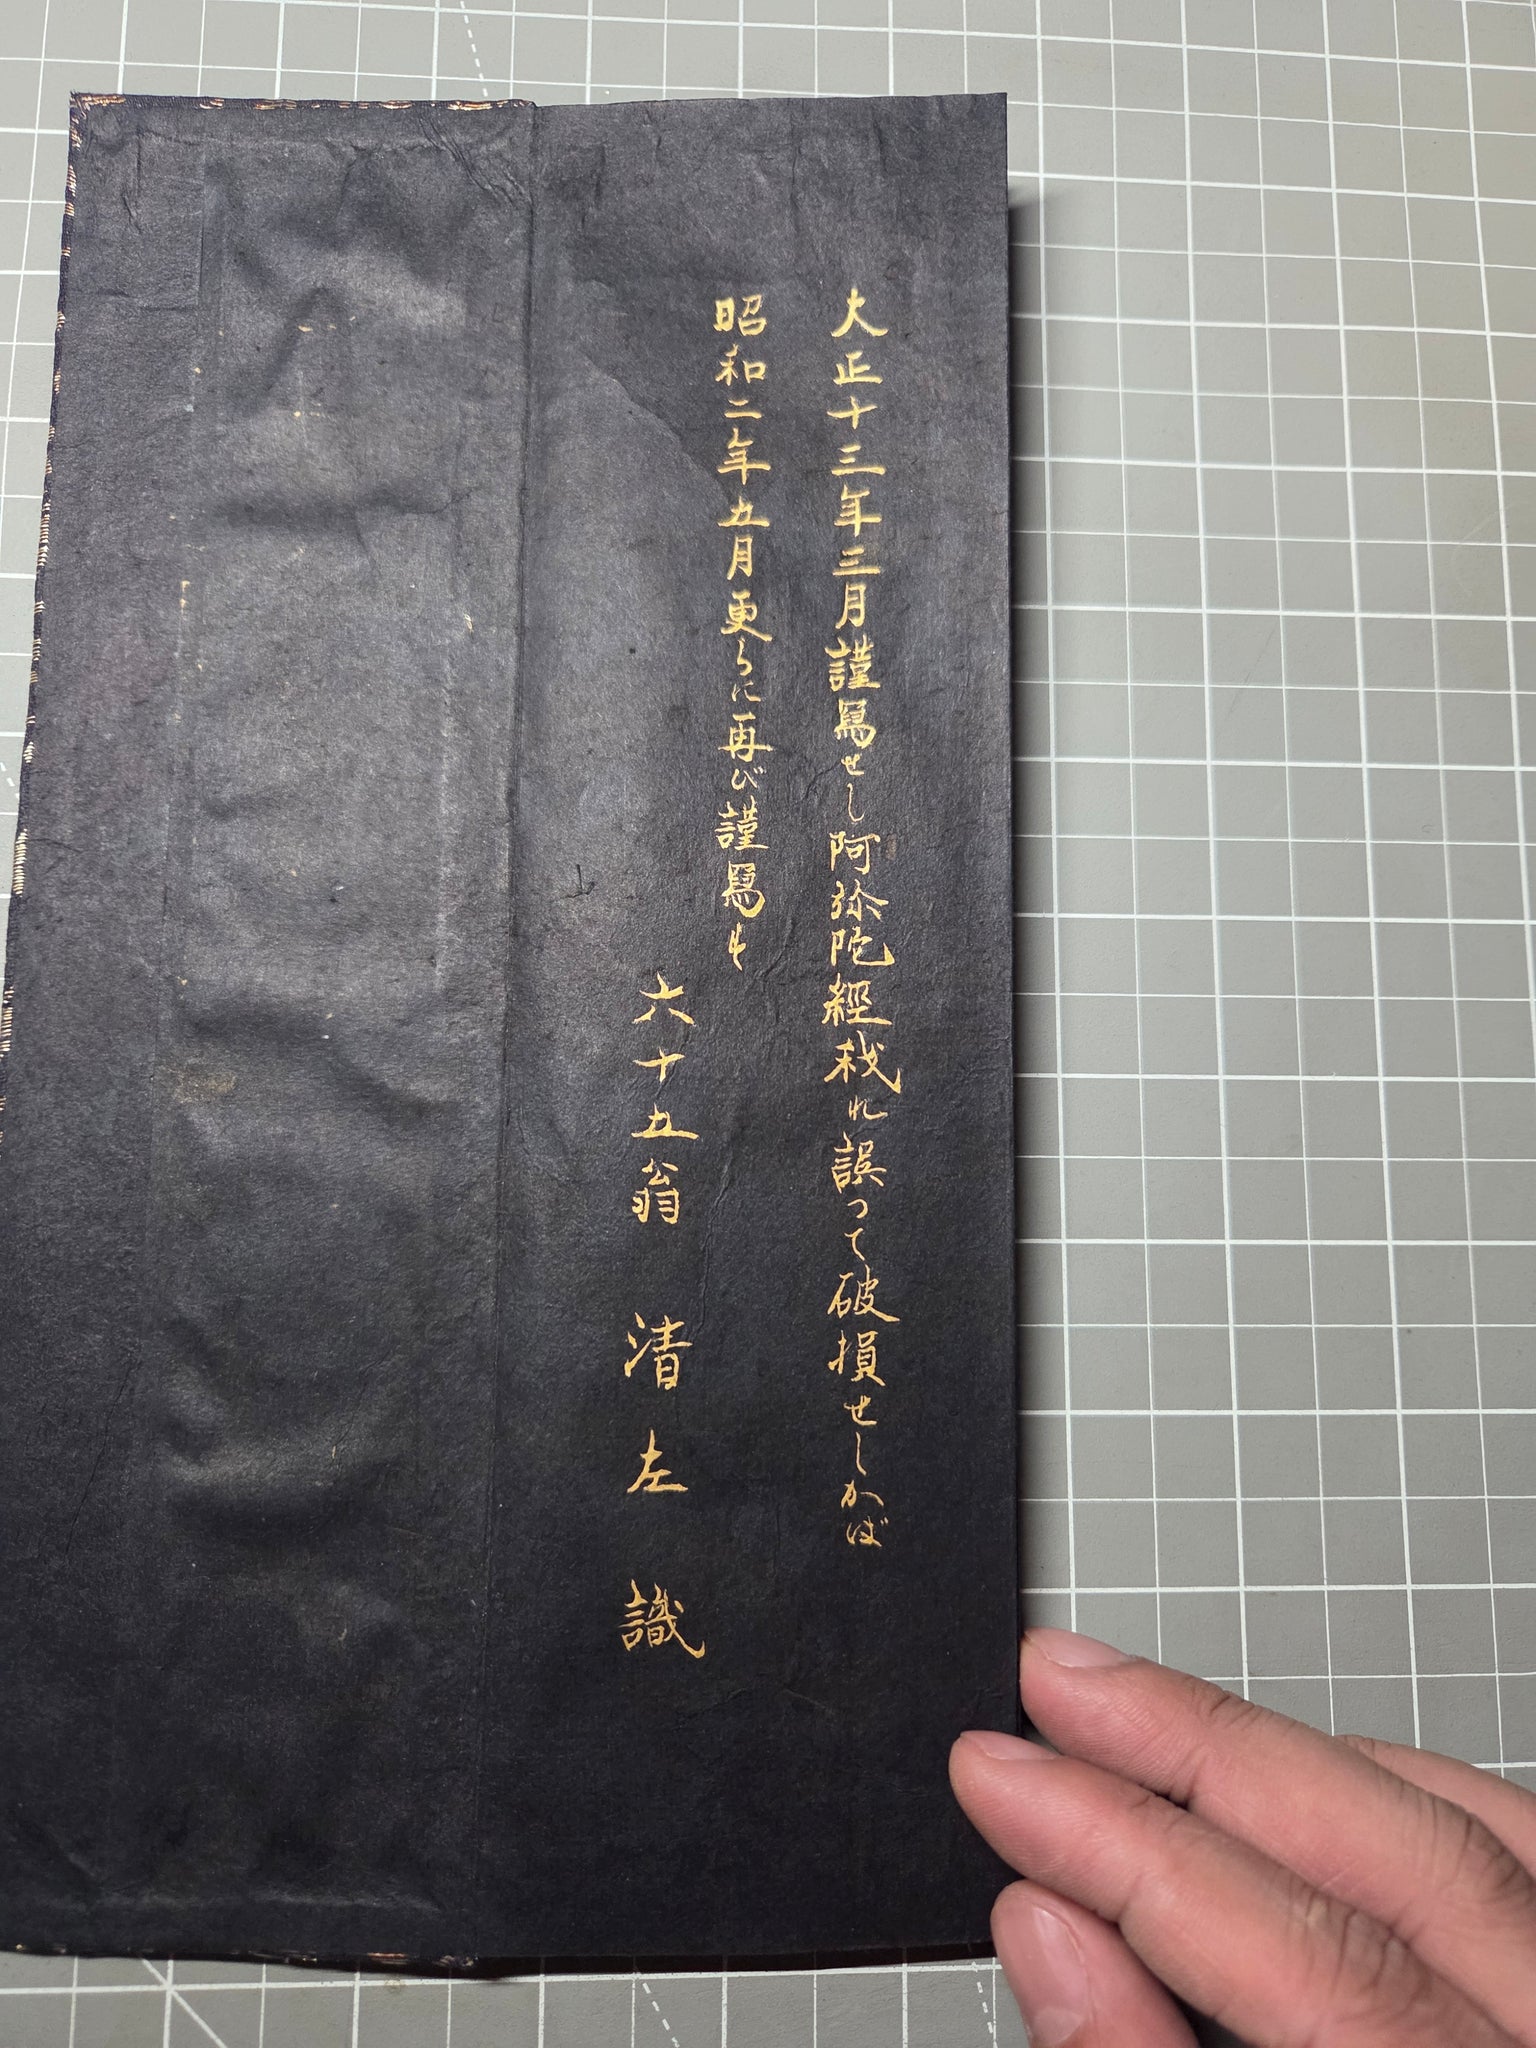 大正十三年三月謹冩せし阿弥陀經我れ誤つて破損せしかば
昭和二年五月更らに再び謹冩す
六十五翁 清左 識